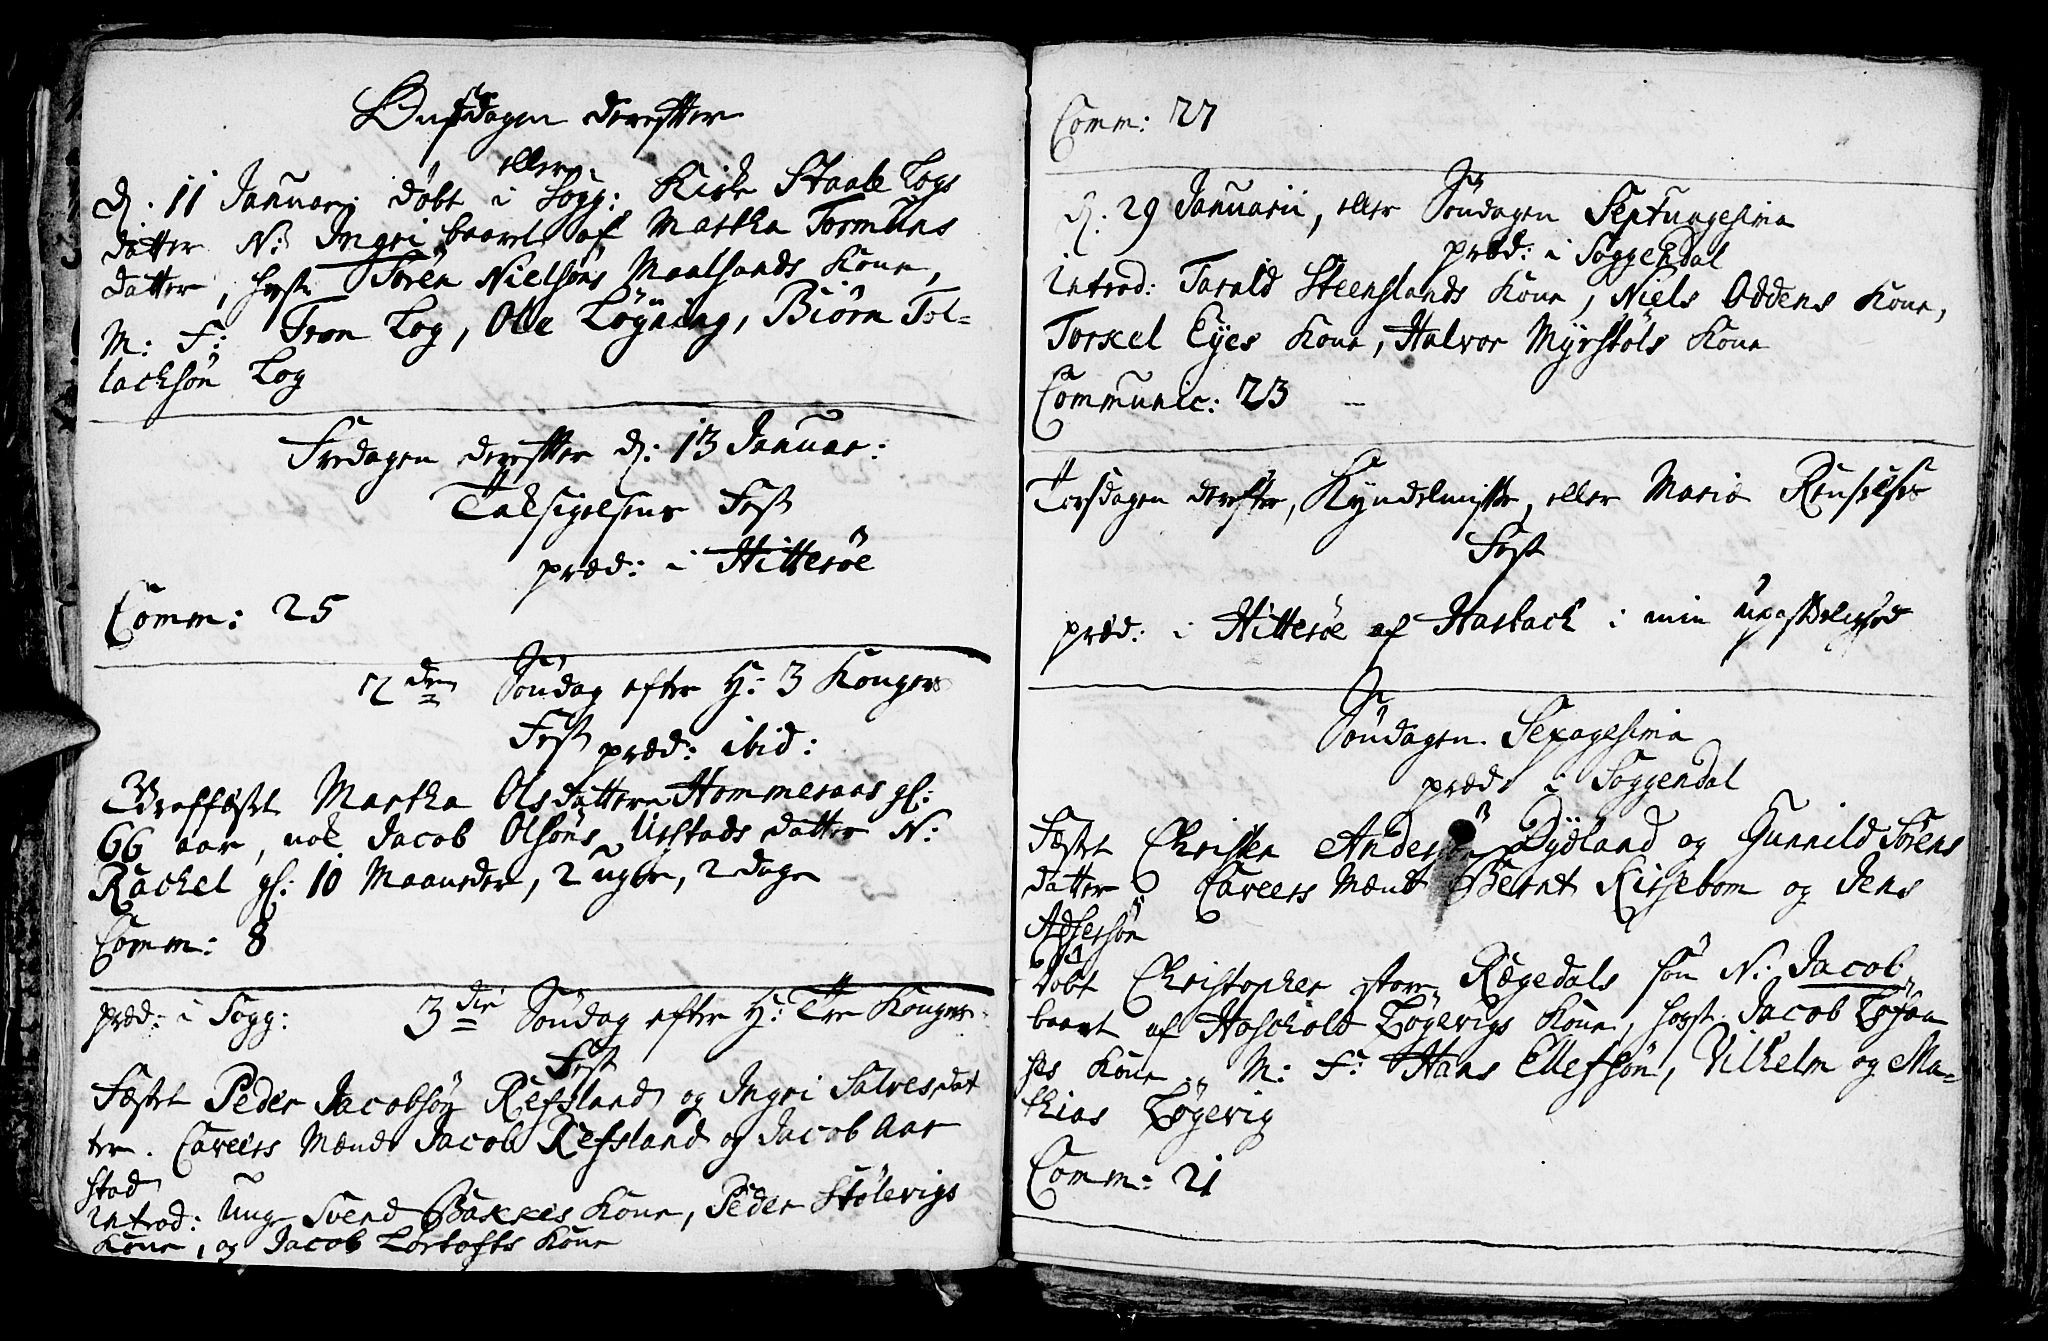 Onsdagen derefter
eller
d. 11 Januar: døbt i Sogg: Kirke Staale Logs
datter N: Ingri baaret af Martha Tormuns
datter, hoste Sören Nielsöns Maalsands Kone,
M: F: Tron Log, Ole Løgning, Biörn Tol=
lacksön Log
Fredagen derefter d: 13 Januar:
Taksigelsens Fest
præd: i Hitteröe
Comm: 25
2den Söndag efter H: 3 Kongers
Fest præd: ibid:
Martha Olsdatter Hommeraas gl:
66 aar, nok Jacob Olsöns Urstads datter N:
Rachel gl: 10 Maaneder, 2 uger, 2 dage
Comm: 8
præd: i Sogg: 3die Söndag efter H: Tre Kongers
Fest
Fæstet Peder Jacobsön Refsland og Ingri Salvesdat
ter. Caveers Mænd Jacob Refsland og Jacob Aar
stad
introd: Unge Svend Bakkes Kone, Peder Stölevigs
Kone, og Jacob Lortofts Kone
Comm: 27
d. 29 Januarii, eller Söndagen Septuagesima
præd: i Soggendal
introd: Tarald Steenslands Kone, Niels Oddens Kone,
Torkel Eyes Kone, Halvor Myrstöls Kone
Communic: 23
Torsdagen derefter, Kyndelmisse, eller Mariæ Renselses
Fest
præd: i Hitteröe af Harback i min
Söndagen Sexagesima
præd: i Soggendal
Fæstet Christen Andersön Dydland og Gunnild Sörens
datter Caveers Mænd Bernt Kirsebom og Jens
Adsersön
døbt Christopher store Rægedals sön N: Jacob
baaret af Haschold Løgevigs Kone, hoste Jacob
Kone M: F: Hans Ellefsön, Vilhelm og Ma=
thias Løgevig
Comm: 21